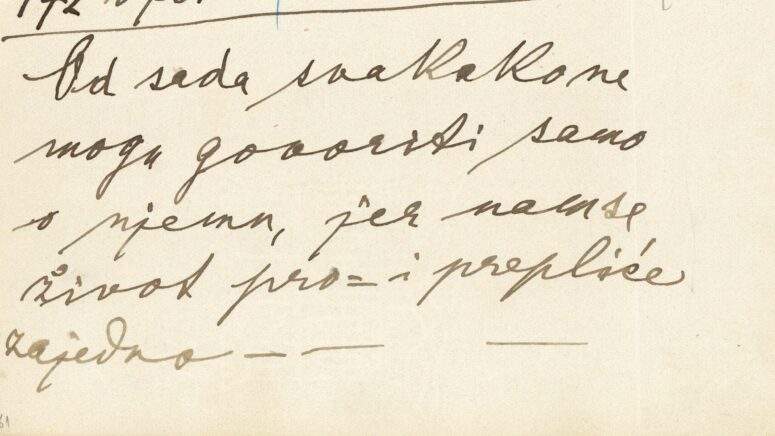 Od sada svakakone
mogu govoriti samo
o njemu, jer namse
život pro= i prepliće
zajedno — — —
61